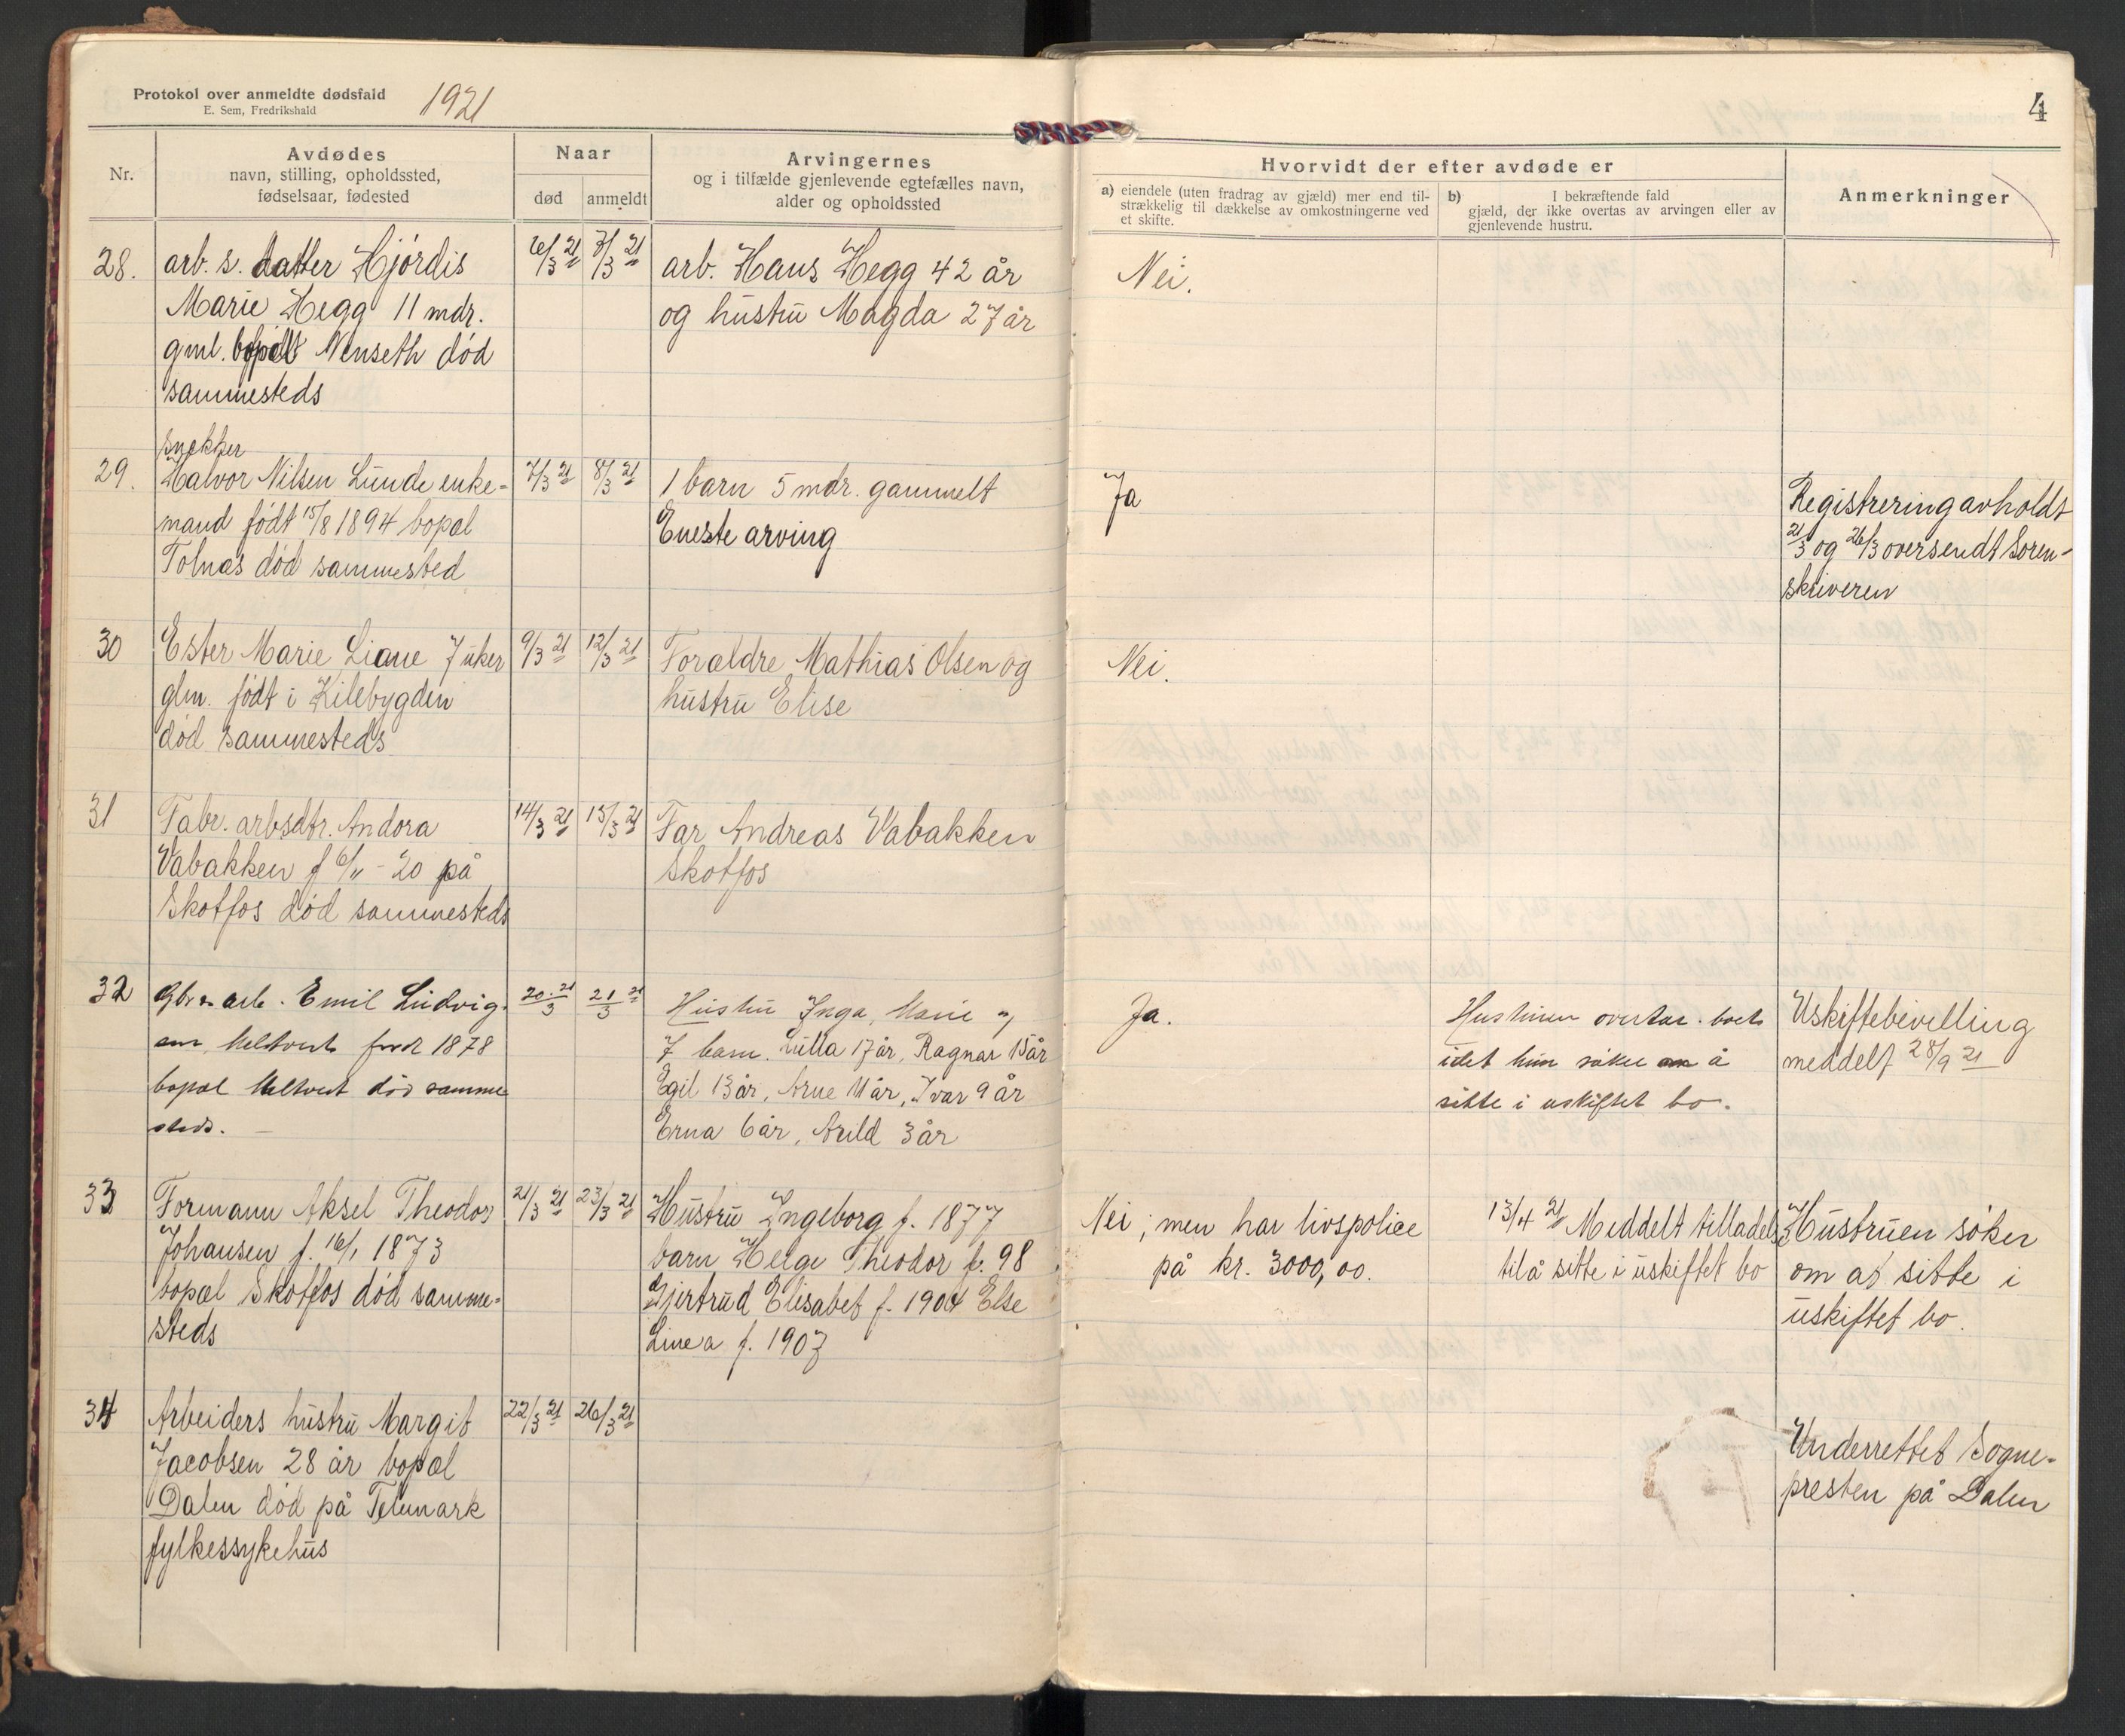 Protokol over anmeldte dødsfald
E. Sem, Fredrikshald
1921
4
Nr.
Avdødes
navn, stilling, opholdssted,
fødselsaar, fødested
Naar
død
anmeldt
Arvingernes
og i tilfælde gjenlevende egtefælles navn,
alder og opholdssted
Hvorvidt der efter avdøde er
a) eiendele (uten fradrag av gjæld) mer end til-
strækkelig til dækkelse av omkostningerne ved
et skifte.
b) I bekræftende fald
gjæld, der ikke overtas av arvingen eller av
gjenlevende hustru.
Anmerkninger
28.
arb. s. datter Hjördis
Marie Hegg 11 mdr.
gml. bopæl Nenseth död
sammesteds
6/3 21
7/3 21
arb. Hans Hegg 42 år
og hustru Magda 27 år
Nei.
29.
snekker
Halvor Nilsen Lunde enke-
mand født 15/8 1894 bopæl
Tolnæs död sammested
7/3 21
8/3 21
1 barn 5 mdr. gammelt
Eneste arving
Ja
Registrering avholdt
21/3 og 26/3 oversendt Soren-
skriveren
30
Ester Marie Liane 7 uker
glm. födt i Kilebygden
död sammesteds
9/3 21
12/3 21
Forældre Mathias Olsen og
hustru Elise
Nei.
31
Fabr. arbsdtr. Andora
Vabakken f 6/11 - 20 på
Skotfos död sammesteds
14/3 21
15/3 21
Far Andreas Vabakken
Skotfos
32
arb. Emil Ludvig-
sen, født 1878
bopæl død samme
steds.
20/3 21
21/3 21
Hustru Inga Marie og
7 barn. Lulla 17 år, Ragnar 15 år
Egil 13 år, Arne 11 år, Ivar 9 år
Erna 6 år, Arild 3 år
Ja.
Hustruen overtar boet
idet hun søker om å
sitte i uskiftet bo.
Uskiftebevilling
meddelt 28/9 21
33
Formann Aksel Theodor
Johansen f. 16/1 1873
bopæl Skotfos död samme-
steds
21/3 21
23/3 21
Hustru Ingeborg f. 1877
barn Helge Theodor f. 98
Gjertrud Elisabet f. 1904 Else
Linea f. 1907
Nei; men har livspolice
på kr. 3000,00.
13/4 21 Meddelt tilladelse
til å sitte i uskiftet bo
Hustruen söker
om at sitte i
uskiftet bo.
34
Arbeiders hustru Margit
Jacobsen 28 år bopæl
Dalen död på Telemark
fylkessykehus
22/3 21
26/3 21
Underrettet Sogne-
presten på Dalen